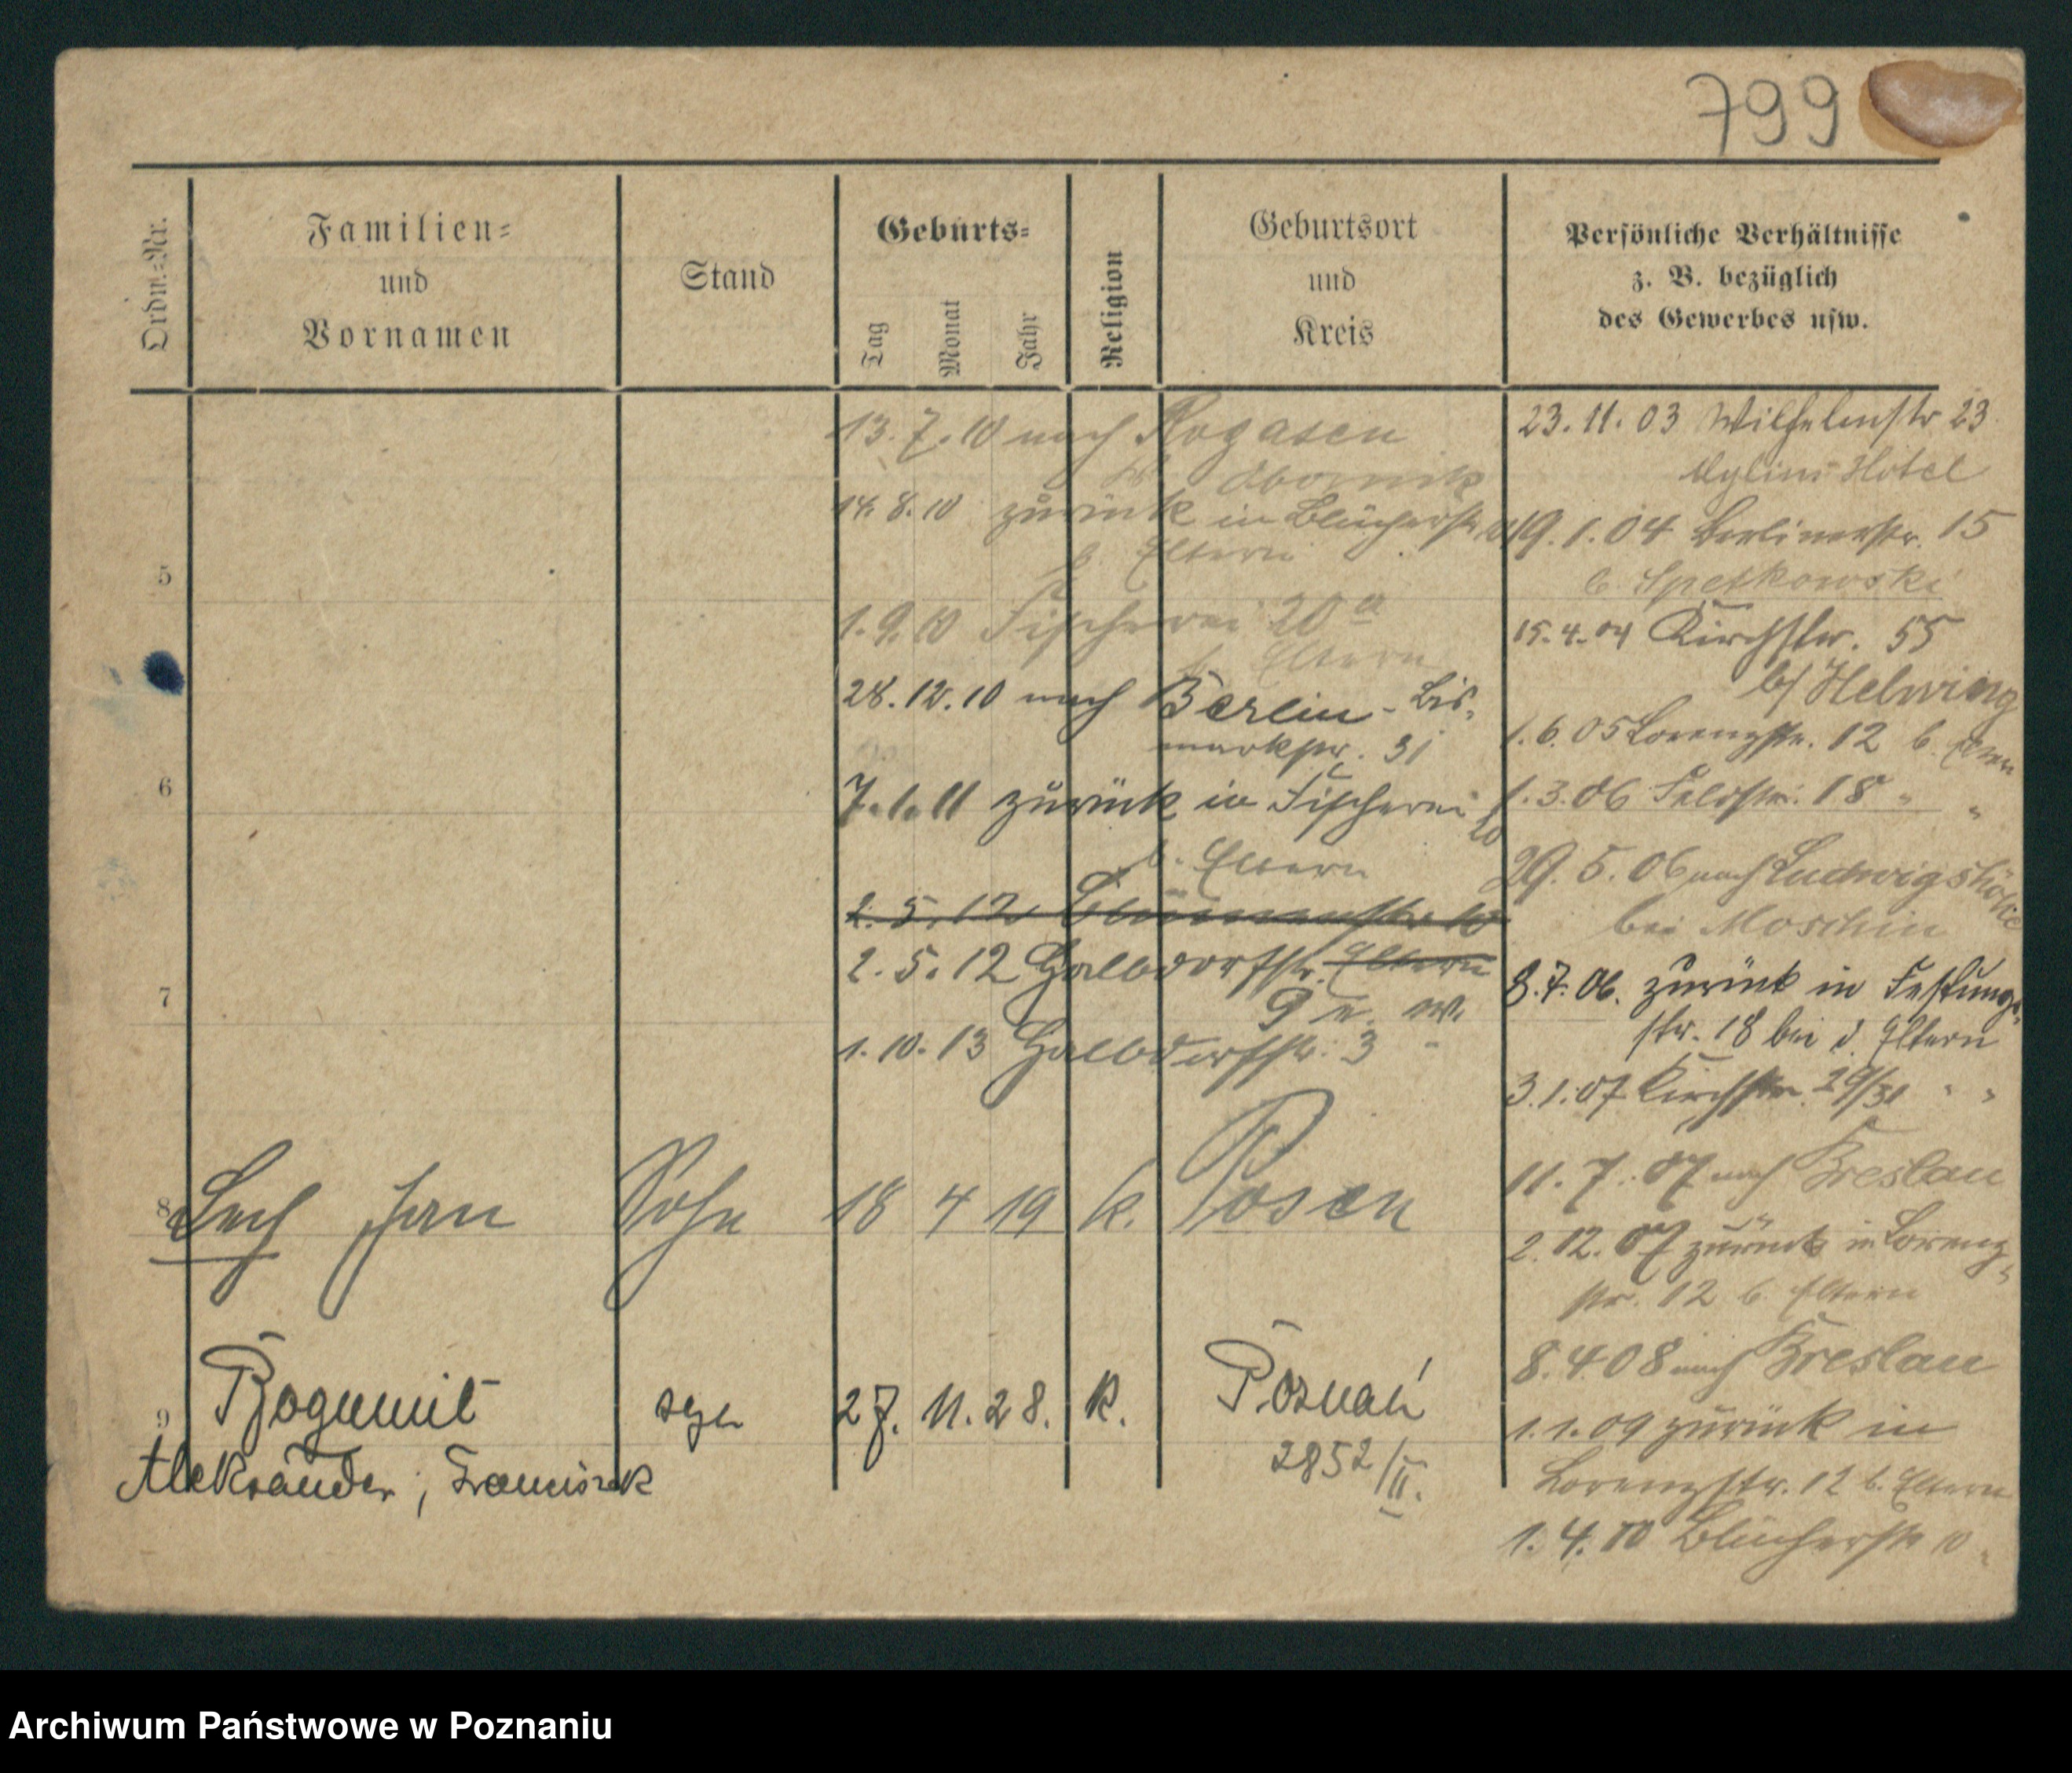 799
Ordn.=Nr.
Familien=
und
Vornamen
Stand
Geburts=
Tag
Monat
Jahr
Religion
Geburtsort
und
Kreis
Persönliche Verhältnisse
z. B. bezüglich
des Gewerbes usw.
13. 7. 10 nach Rogasen
Obornik
14. 8. 10 zurück in Blücherstr
b. Eltern
5
1. 9. 10 Fischerei 20a
b. Eltern
28. 12. 10 nach Berlin - Bis-
markstr. 31
6
7. 1. 11 zurück in Fischerei 20
b. Eltern
2. 5. 12
2. 5. 12 Halbdorfstr. Eltern
9
7
1. 10. 13 Halbdorfstr. 3 "
8 Lech Jan Sohn 18 4 19 k. Posen
9 Bogumił syn 27. 11. 28. k. Poznań
Aleksander, Franciszek
2852/II.
23. 11. 03 Wilhelmstr 23
Mylius Hotel
19. 1. 04 Berlinerstr. 15
b.
15. 4. 04 Kirchstr. 55
b/ Helwing
1. 6. 05 Lorenzstr. 12 b. Eltern
1. 3. 06 Feldstr. 18 " "
29. 5. 06 nach Ludwigshöhe
bei Moschin
8. 7. 06. zurück in Festungs-
str. 18 bei d. Eltern
3. 1. 07 Kirchstr. 29/31 " "
11. 7. 07 nach Breslau
2. 12. 07 zurück in Lorenz-
str. 12 b. Eltern
8. 4. 08 nach Breslau
1. 1. 09 zurück in
Lorenzstr. 12 b. Eltern
1. 4. 10 Blücherstr 10
Archiwum Państwowe w Poznaniu